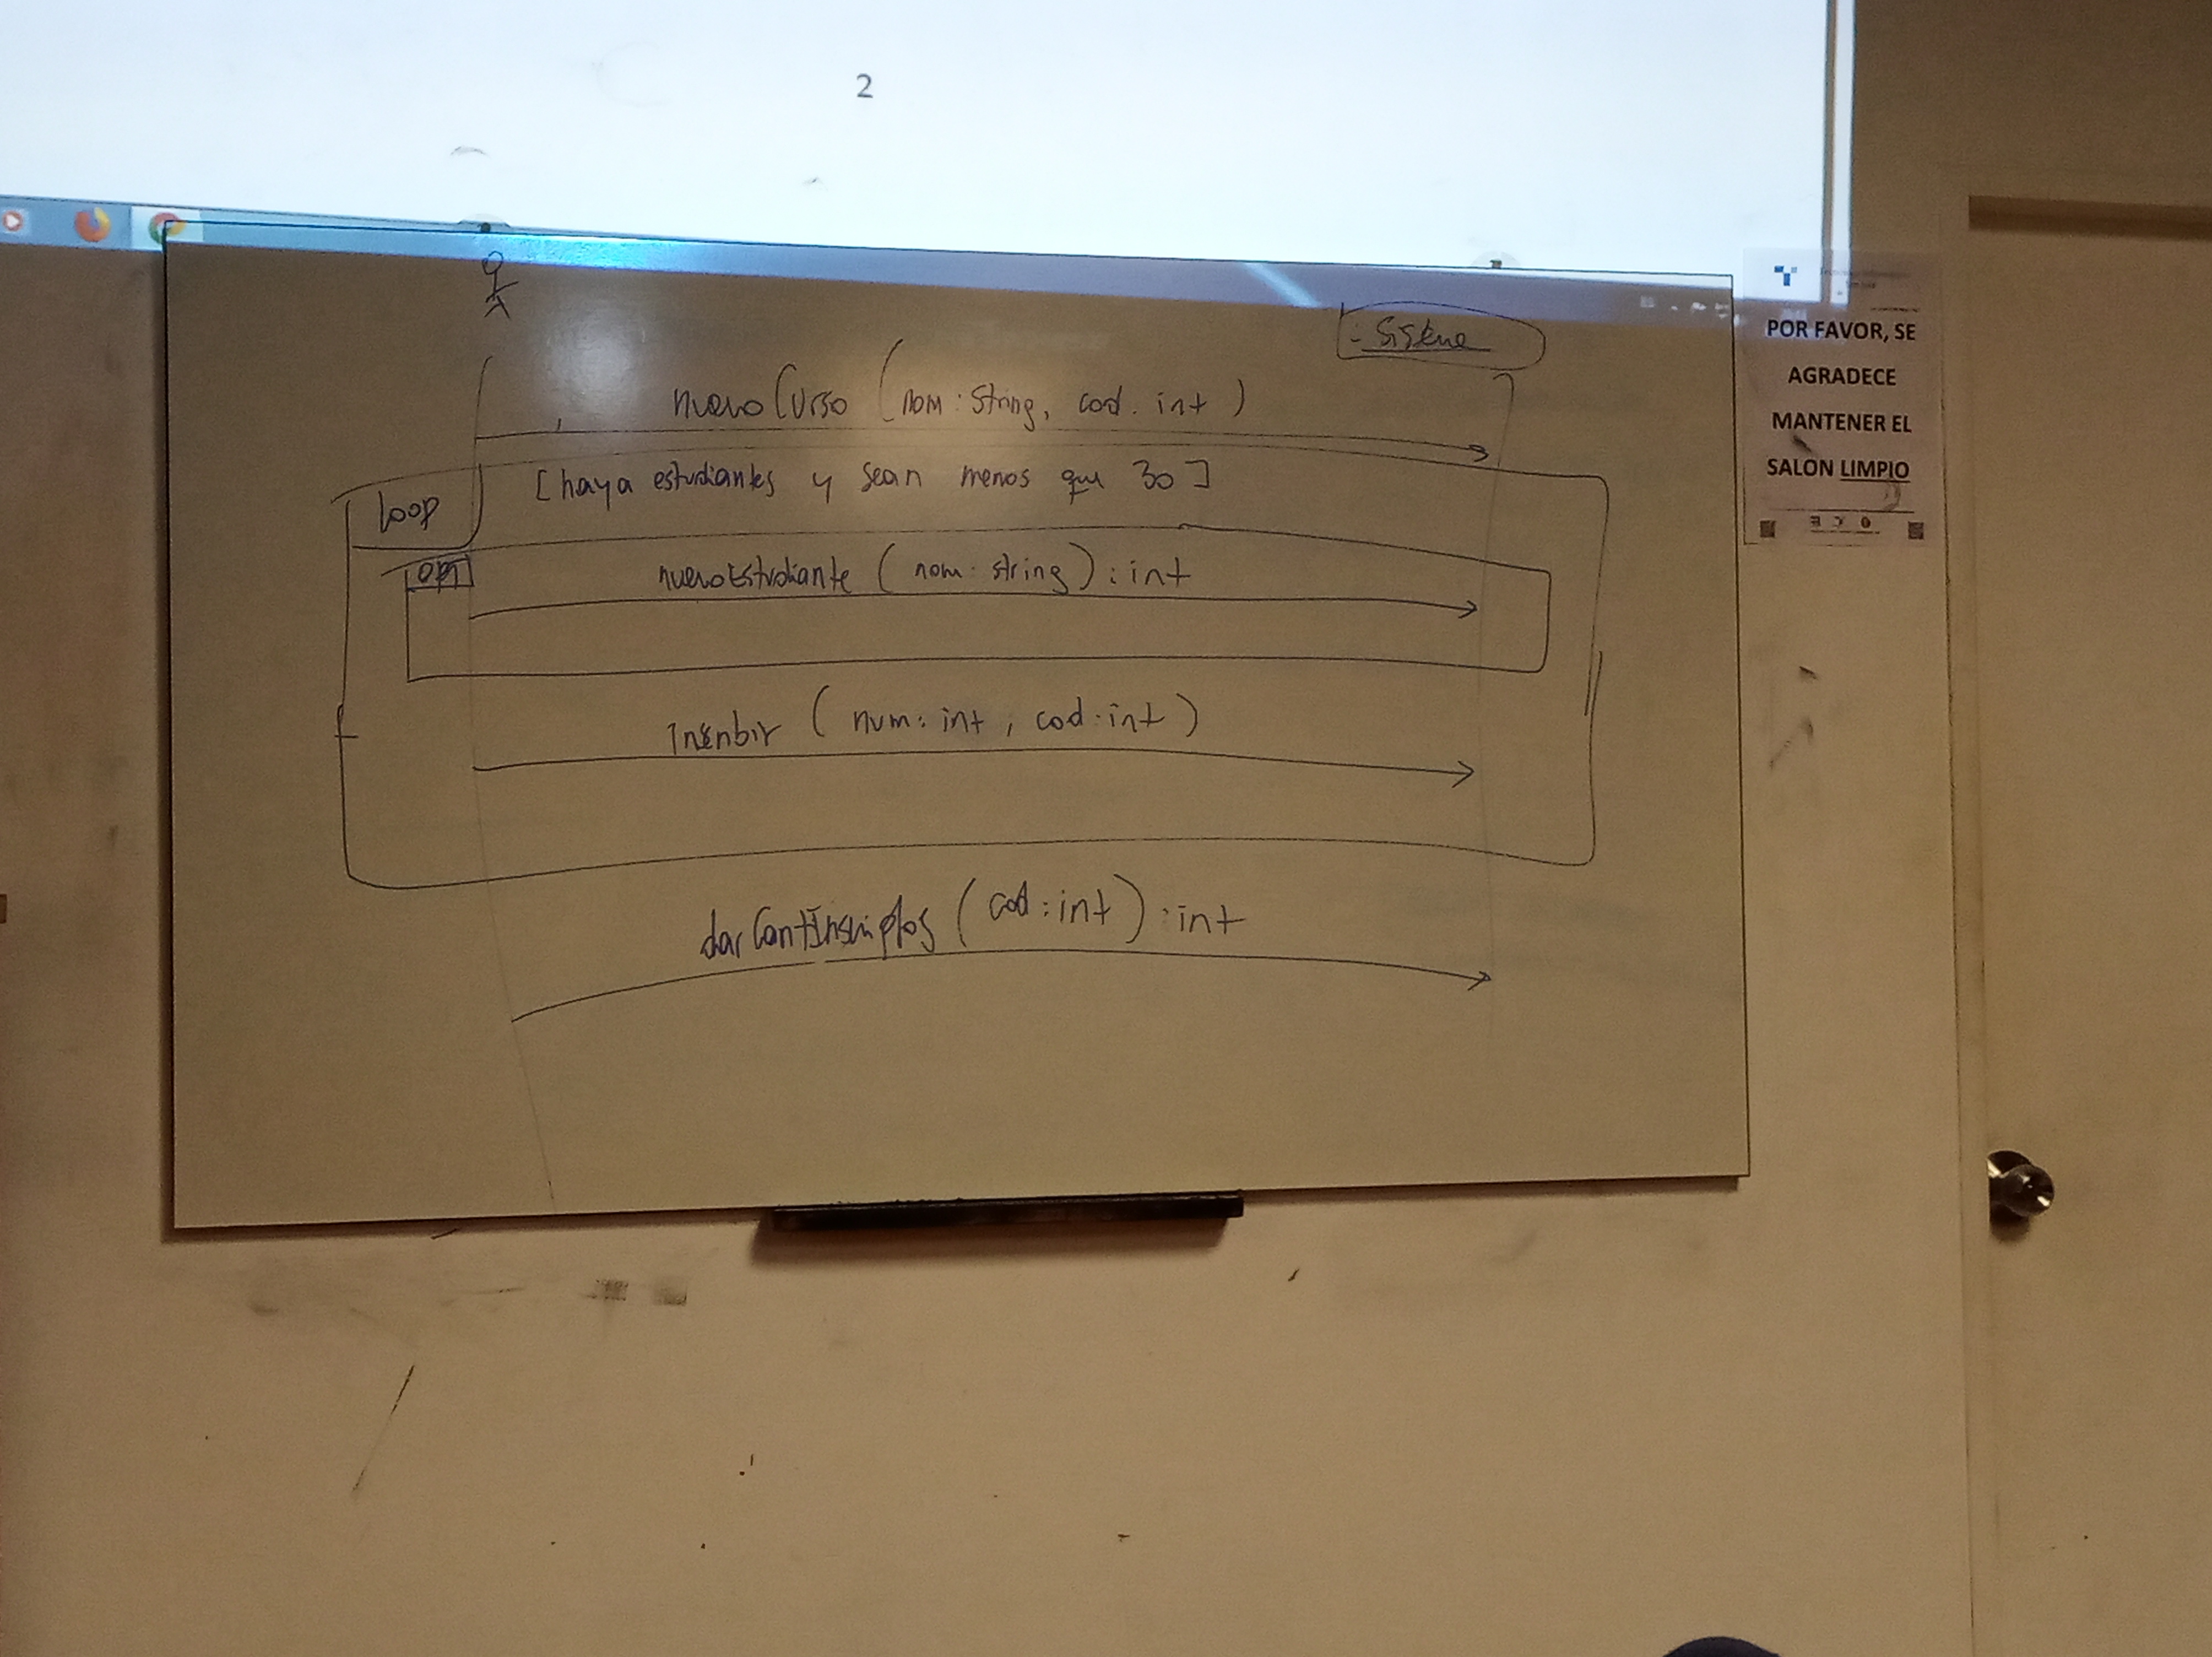 2
: Sistema
nuevoCurso (nom: String, cod: int)
loop
[haya estudiantes y sean menos que 30]
opt
nuevoEstudiante (nom: string): int
Inscribir (num: int, cod: int)
darCantInscriptos (cod: int): int
POR FAVOR, SE
AGRADECE
MANTENER EL
SALON LIMPIO